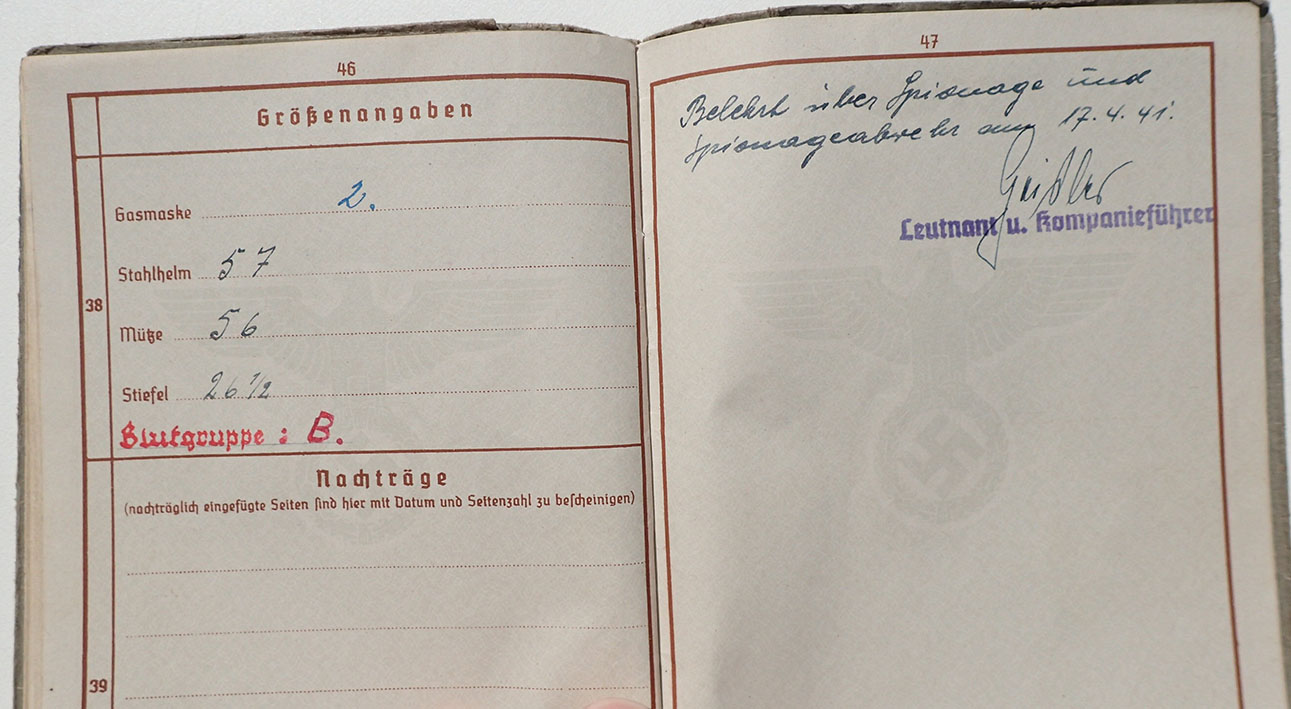 46
Größenangaben
Gasmaske 2.
Stahlhelm 57
38
Mütze 56
Stiefel 26 1/2
Blutgruppe : B.
Nachträge
(nachträglich eingefügte Seiten sind hier mit Datum und Seitenzahl zu bescheinigen)
39
47
Belehrt über Spionage und
Spionageabwehr am 17.4.41.
Leutnant u. Kompanieführer